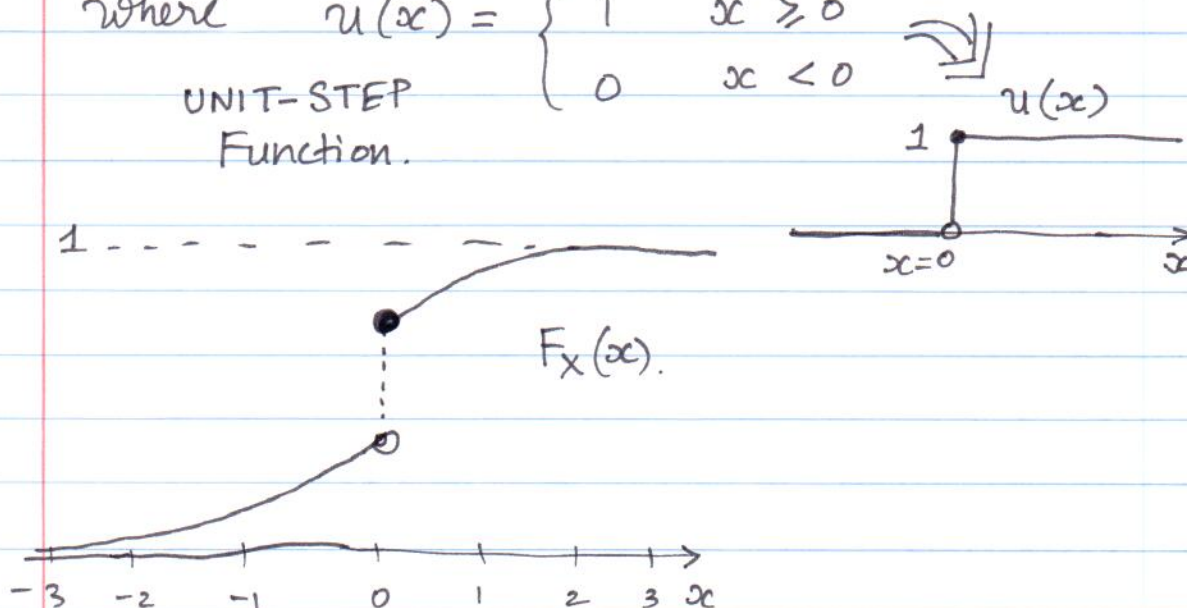 where u(x) = { 1 x ≥ 0
0 x < 0
UNIT-STEP
Function.
u(x)
1
x=0 x
1
F_X(x).
-3 -2 -1 0 1 2 3 x